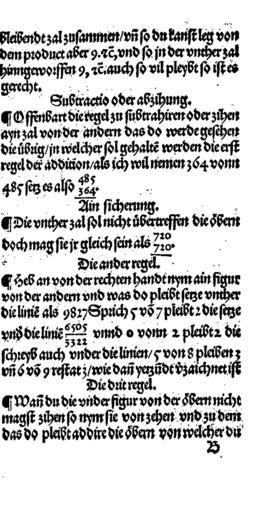 bleibendt zal zusammen/vñ so du kanst leg von
dem product aber 9.ꝛc̃. vnd so jn der vnther zal
hinngeworffen 9, ꝛc̃. auch so vil pleybt so ist es
gerecht.
Subtractio oder abzihung.
¶ Offenbart die regel zu subtrahiren oder zihen
ayn zal von der andern das do werde gesehen
die übrig/in welcher sol gehaltē werden die erst
regel der addition/als ich wil nemen 364 vonn
485 setz es also 485
364.
Ain sicherung.
¶ Die vnther zal sol nicht übertreffen die öbern
doch mag sie jr gleich sein als 720
720.
Die ander regel.
¶ Heb an von der rechten handt nym ain figur
von der andern vnd was do pleibt setze vnther
die liniē als 9827 Sprich 5 vō 7 pleibt 2 die setze
vnd̄ die liniē 6505
3322 vnnd 0 vonn 2 pleibt 2 die
schreyb auch vnder die linien/5 von 8 pleiben 3
vñ 6 vō 9 restat 3/wie dañ yetzūdt v̄zaichnet ist
Die drit regel.
¶ Wañ du die vnder figur von der öbern nicht
magst zihen so nym sie von zehen vnd zu dem
das do pleibt addire die öbern von welcher du
B